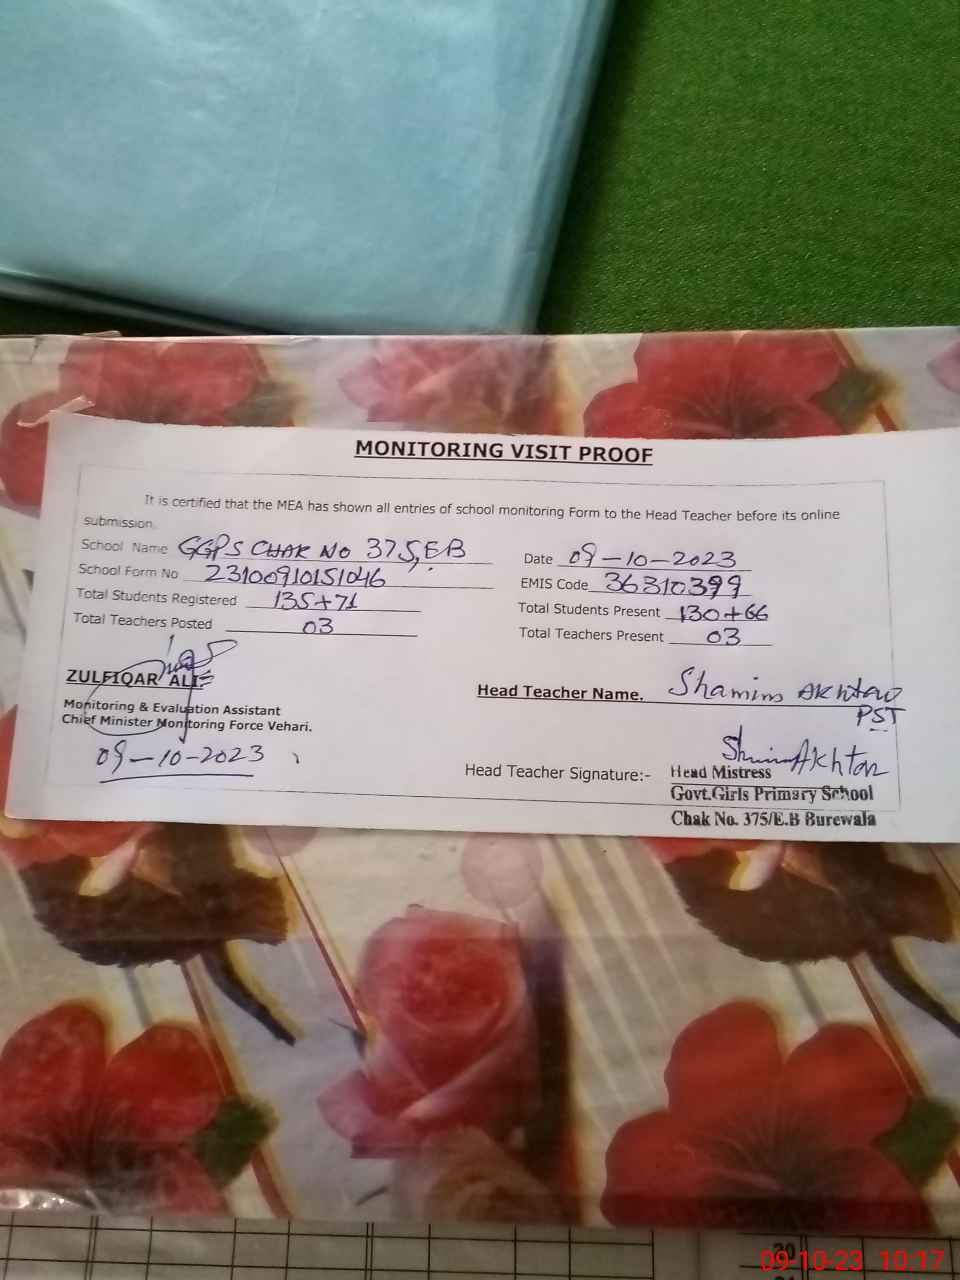 MONITORING VISIT PROOF
It is certified that the MEA has shown all entries of school monitoring Form to the Head Teacher before its online
submission.
School Name GGPS CHAK NO 375,EB
Date 09-10-2023
School Form No 23100910151046
EMIS Code 36310399
Total Students Registered 135+71
Total Students Present 130+66
Total Teachers Posted 03
Total Teachers Present 03
ZULFIQAR ALI
Monitoring & Evaluation Assistant
Chief Minister Monitoring Force Vehari.
09-10-2023
Head Teacher Name. Shamim Akhtar
PST
Head Teacher Signature:- Shamim Akhtar
Head Mistress
Govt.Girls Primary School
Chak No. 375/E.B Burewala
30
09-10-23 10:17